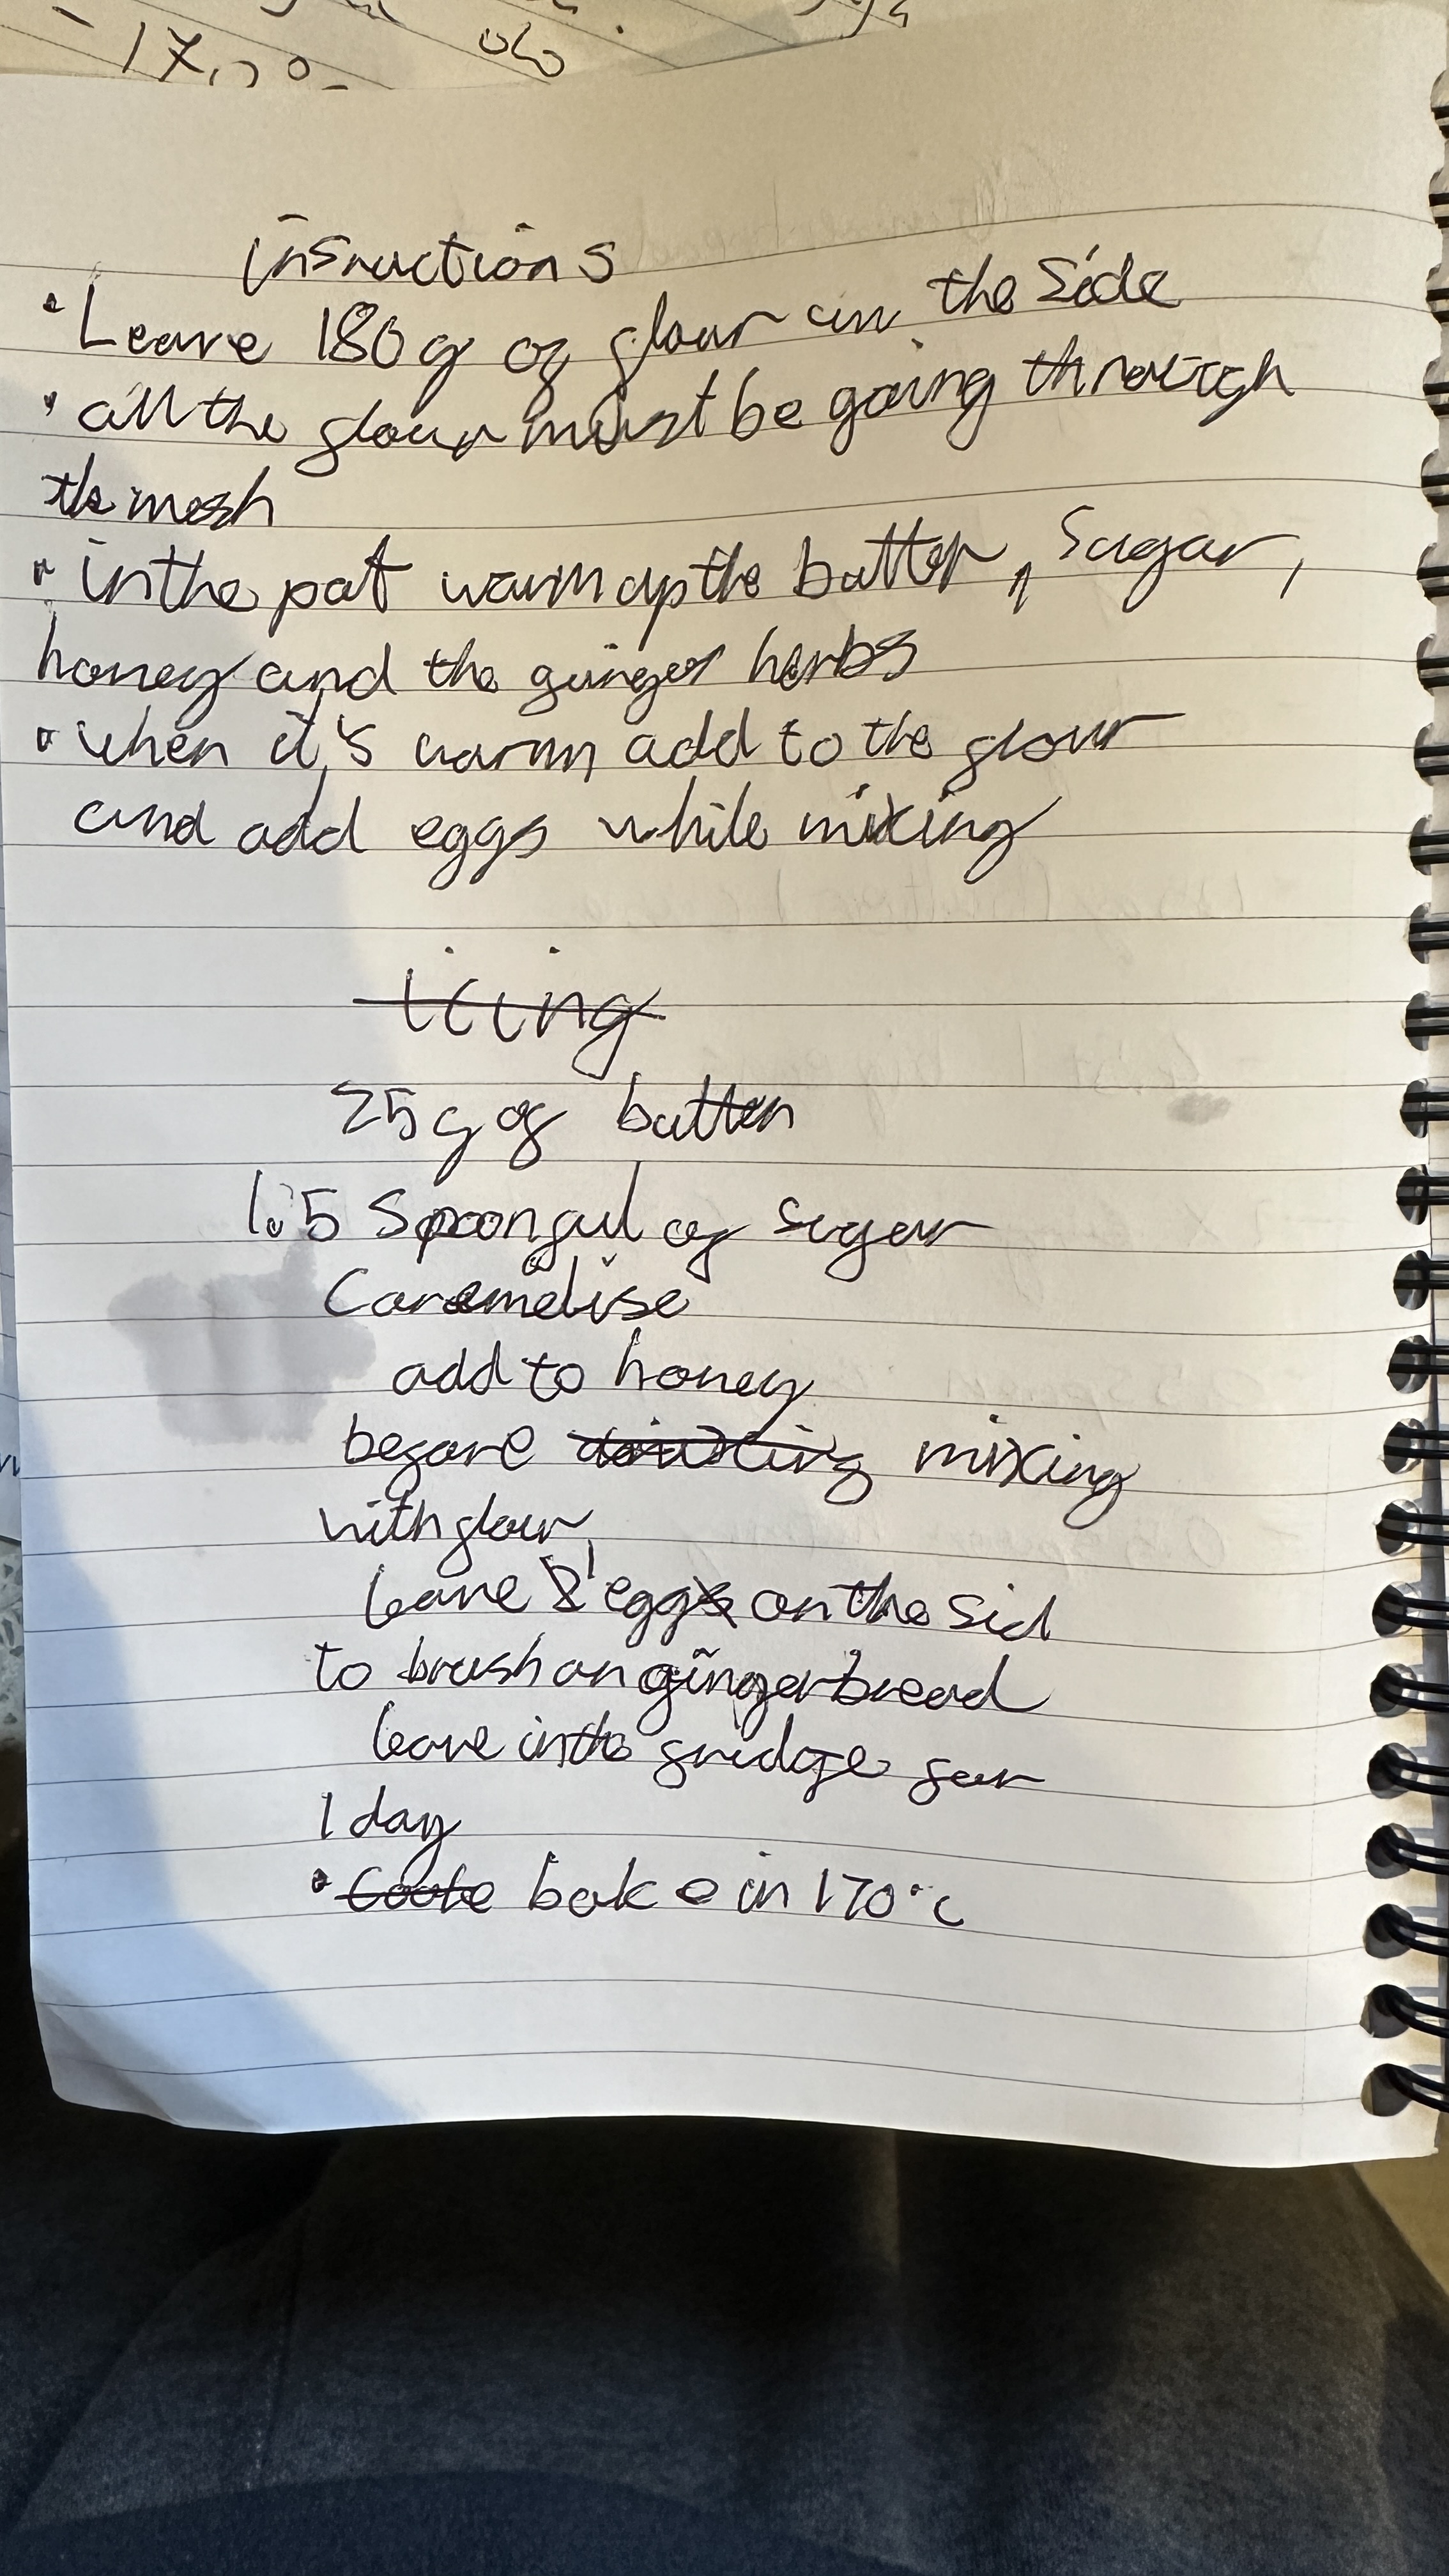 insructions
• Leave 180g of flour on the side
• all the flour must be going through
the mesh
• in the pot warm up the butter, sugar,
honey and the ginger herbs
• when it's warm add to the flour
and add eggs while mixing
icing
25g of butter
1.5 Spoonful of sugar
Caramelise
add to honey
before mixing
with flour
leave 1 egg on the sid
to brush on gingerbread
leave in the fridge for
1 day
• bake in 170°c